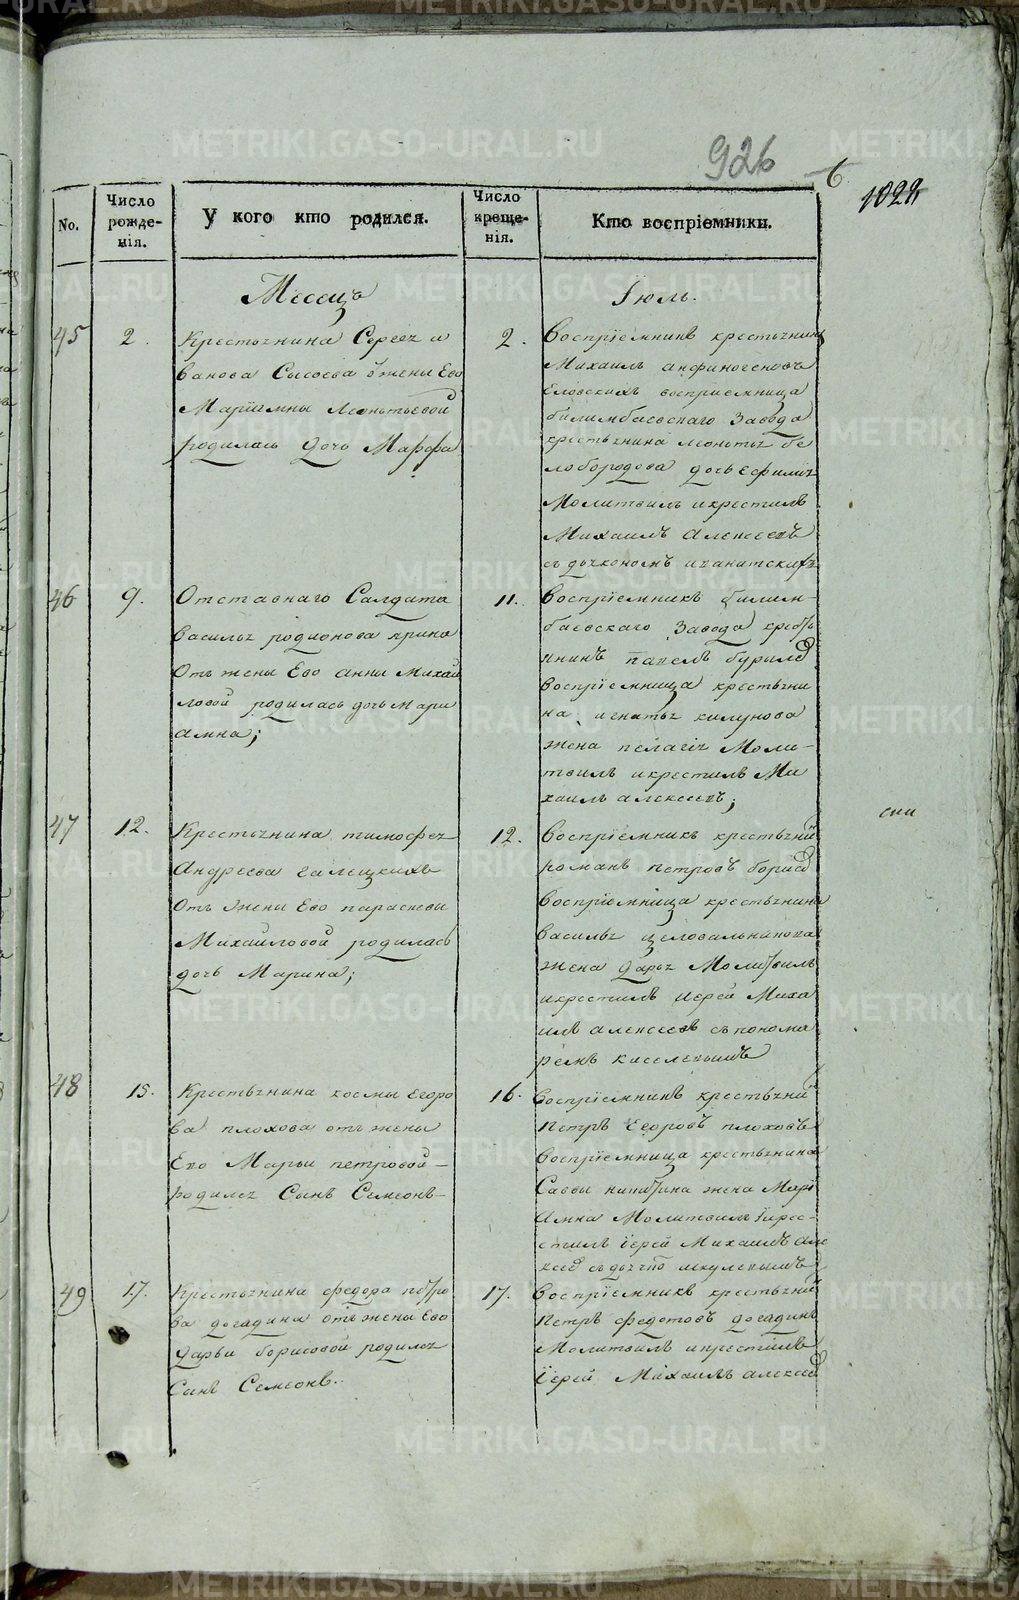 926
6
1022
No.
Число рожде-нія.
У кого кто родился.
Число креще-нія.
Кто воспріемники.
Месецъ
Іюль.
45
2.
Крестьянина Сергея и
ванова Сысоева от жены Ево
Маріямны Леонтьевой
родилась дочь Марфа
2.
Воспріемникъ крестьянинъ
Михаилъ анфиногеновъ
Еловскихъ воспріемница
билимбаевскаго Завода
крестьянина леонтья бе
лобородова дочь ефимия
Молитвилъ и крестилъ
Михаилъ Алексеевъ
съ дьякономъ
46
9.
Отставнаго Салдата
василья родионова
Отъ жены Ево анны Михаи
ловой родилась дочь Мари
амна;
11.
Воспріемникъ билим-
баевскаго Завода кресть
янинъ павелъ
воспріемница крестьяни
на игнатья
жена пелагия Моли-
твилъ и крестилъ Ми
хаилъ алексеевъ;
47
12.
Крестьянина тимофея
Андреева галецкихъ
Отъ жены Ево параскевы
Михаиловой родилась
дочь Марина;
12.
Воспріемникъ крестьянинъ
романъ петровъ
Воспріемница крестьянина
василья целовальникова
жена дарья Молитвилъ
и крестилъ иерей Миха
илъ алексеевъ съ понома
ремъ киселевымъ
48
15.
Крестьянина космы Егоро
ва плохова отъ жены
Ево Марьи петровой-
родился Сынъ Семеонъ-
16.
Воспріемникъ крестьянинъ
петръ Егоровъ плоховъ
воспріемница крестьянина
Саввы никитина жена Марі
Амна Молитвилъ и крес-
стилъ іерей Михаилъ але
ксеевъ
49
17.
Крестьянина федора петро
ва догадина отъ жены Ево
дарьи борисовой родился
Сынъ Семеонъ..
17.
Воспріемникъ крестьянинъ
петръ федотовъ догадинъ
Молитвилъ и крестилъ
іерей Михаилъ алексеевъ
METRIKI.GASO-URAL.RU